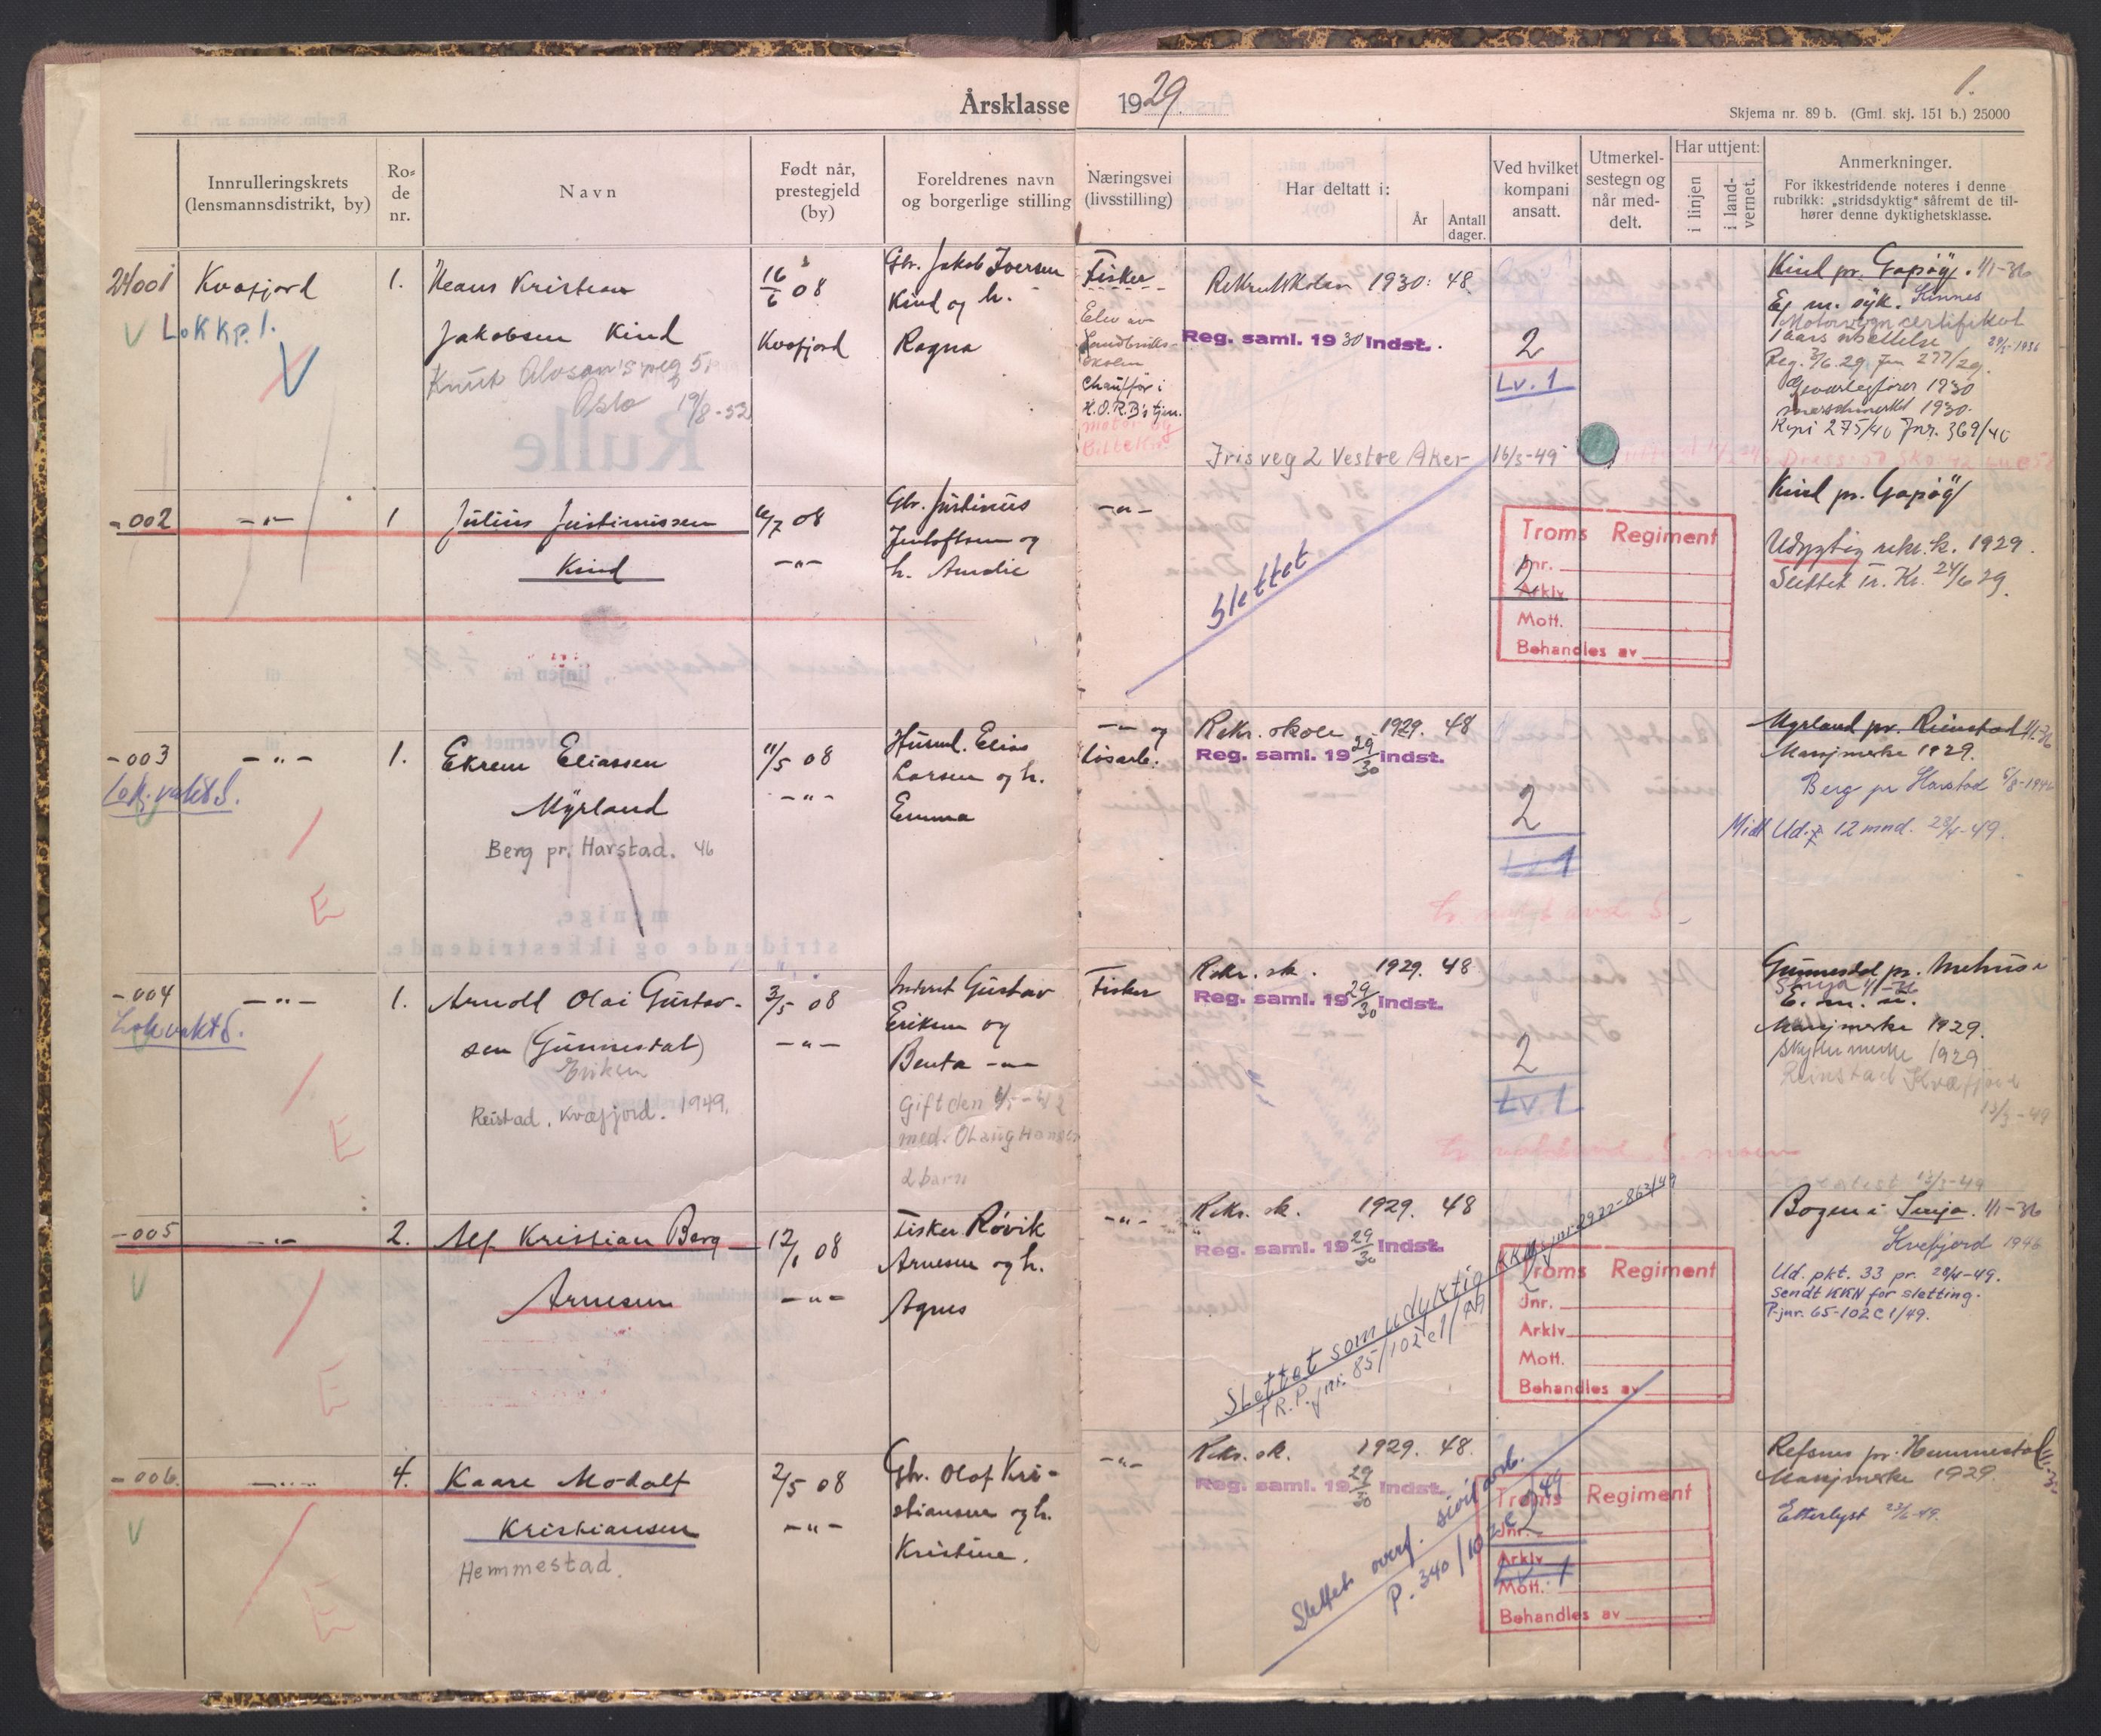 Årsklasse 1929.
1.
Skjema nr. 89 b. (Gml. skj. 151 b.) 25000
Innrulleringskrets
(lensmannsdistrikt, by)
Ro-
de
nr.
Navn
Født når,
prestegjeld
(by)
Foreldrenes navn
og borgerlige stilling
Næringsvei
(livsstilling)
Har deltatt i:
År
Antall
dager.
Ved hvilket
kompani
ansatt.
Utmerkel-
sestegn og
når med-
delt.
Har uttjent:
i linjen
i land-
vernet.
Anmerkninger.
For ikkestridende noteres i denne
rubrikk: „stridsdyktig“ såfremt de til-
hører denne dyktighetsklasse.
Kvæfjord
1.
Hans Kristian
16/6 08
Gbr. Jakob Iversen
Fisker
Rekruttskolen 1930: 48
Kind pr. Gapøy. 1/1-36
Lokkp. 1.
Jakobsen Kind
Kvæfjord
Kind og h.
Ragna
Elev av
Landbruks-
skolen
Chauffør i
H.O.R.B's tjen.
motor og
Reg. saml. 1930 Indst.
2
Lv. 1
Knut Alvson's veg 5
Oslo 19/8-52
Motorvogn certifikat
Reg. 3/6.29. Jnr 277/29.
Geværfører 1930
marschmerket 1930.
Kopi 275/40 Jnr. 369/40
Irisveg 2 Vestre Aker 16/3-49
-002
-"-
1
Julius Justinussen
Kind
6/7 08
-"-
Gbr. Justinus
Jentoftsen og
h. Amalie
-"-
Slettet
2
Troms Regiment
Jnr.
Arkiv
Mott.
Behandles av
Kind pr. Gapøy
Udygtig rekr. sk. 1929.
Slettet 24/6 29.
-003
-"-
1.
Ekrem Eliassen
Myrland
11/5 08
-"-
Husml. Elias
Larsen og h.
Emma
-"- og
løsarb.
Rekr. skole 1929. 48
Reg. saml. 1929/30 Indst.
2
Lv. 1
Lok. vakt S.
Berg pr. Harstad. 46
E
Myrland pr. Reinstad 1/1-36
Marsjmerke 1929.
Berg pr Harstad 5/8-1946
Midl. Ud. 12 mnd. 23/4-49.
-004
-"-
1.
Arnold Olai Gustav-
sen (Gunnestal)
Eriksen
3/5 08
-"-
Gustav
Eriksen og
Benta -"-
Fisker
Rekr. sk. 1929. 48
Reg. saml. 1929/30 Indst.
2
Lv. 1
Lok vakt S.
Reistad. Kvæfjord. 1949.
E
Gift den
med. Olaug Hansen
2 barn
Marsjmerke 1929.
Skyttermerke 1929
Reinstad Kvæfjord
13/3-49
-005
-"-
2.
Alf Kristian Berg
Arnesen
12/1 08
-"-
Fisker Røvik
Arnesen og h.
Agnes
-"-
Rekr. sk. 1929. 48
Reg. saml. 1929/30 Indst.
Slettet som udyktig
TR.P. jnr. 85/102 c1/49
E
Troms Regiment
Jnr.
Arkiv
Mott.
Behandles av
Bogen i Senja. 1/1-36
Kvefjord 1946
Ud. pkt. 33 pr. 28/4-49.
sendt KKN for sletting.
P-jnr. 65-102 C 1/49.
-006.
-"-
4.
Kaare Modolf
Kristiansen
Hemmestad.
2/5 08
-"-
Gbr. Olaf Kri-
stiansen og h.
Kristine.
-"-
Rekr. sk. 1929. 48.
Reg. saml. 1929/30 Indst.
Slettet overf. sivil arb.
E
2
Troms Regiment
Jnr.
Arkiv
Mott.
Behandles av
Refsnes pr. Hemmestad
Marsjmerke 1929.
Etterlyst 23/6-49.